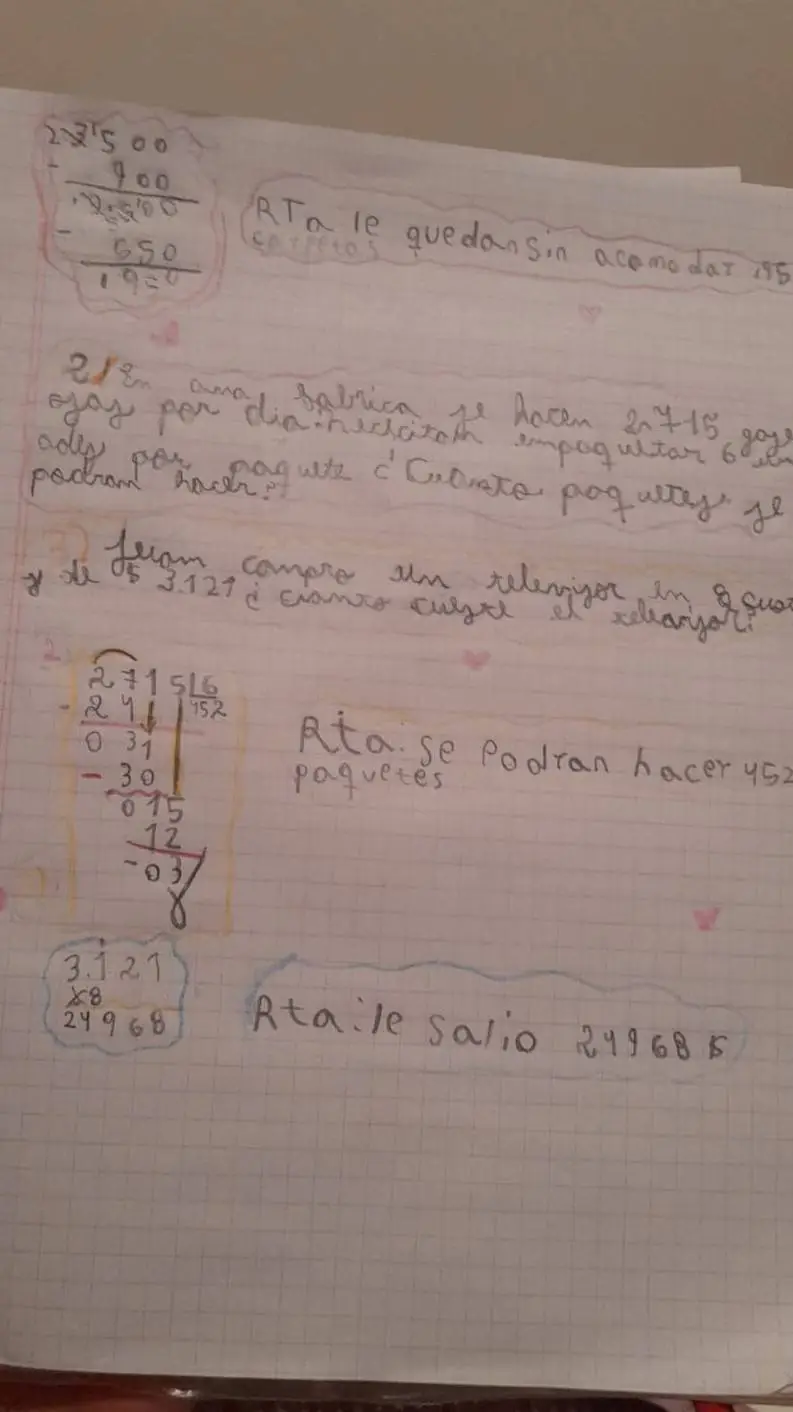 500
- 900
- 650
RTa le quedan sin acomodar 195
carretos
2/ En una fabrica se hacen 2.715 gase
osas por dia. necesitan empaquetar 6 un
ades por paquete ¿Cuanto paquetes se
podran hacer?
3) Juan compro un televisor en 8 cuot
s de $ 3.121 ¿ cuanto
2.
2715 6
- 24 452
0 31
- 30
015
12
- 03
Rta: se podran hacer 452
paquetes
3.121
x8
24968
Rta: le salio 24968 $